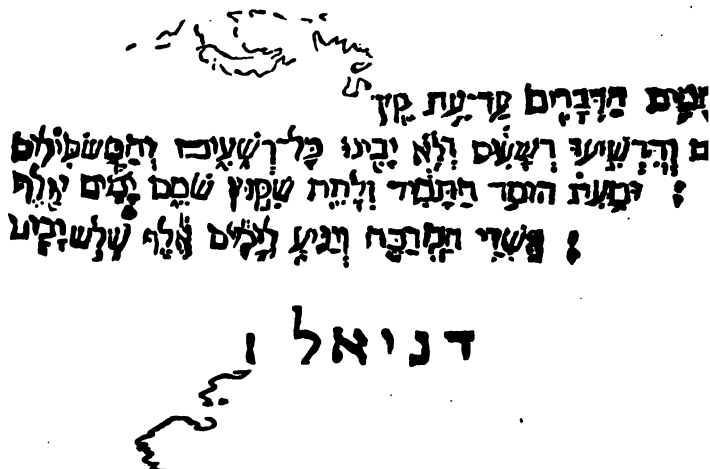 הַדְּבָרִים עַד־עֵת קֵץ
וְהִרְשִׁיעוּ רְשָׁעִים וְלֹא יָבִינוּ כָּל־רְשָׁעִים וְהַמַּשְׂכִּלִים
וּמֵעֵת הוּסַר הַתָּמִיד וְלָתֵת שִׁקּוּץ שֹׁמֵם יָמִים
: אַשְׁרֵי הַמְחַכֶּה וְיַגִּיעַ לְיָמִים אֶלֶף שְׁלֹשׁ
דניאל ו